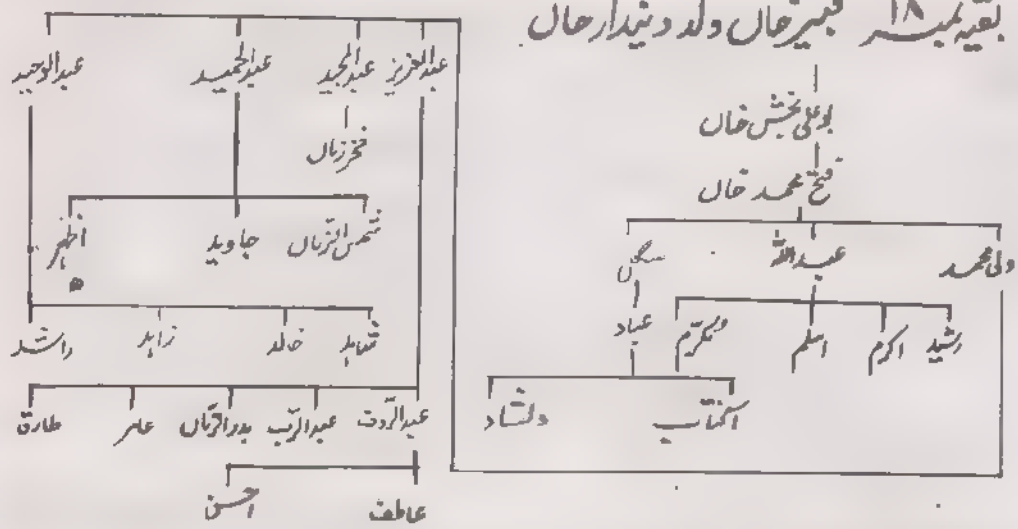 بقیہ نمبر ۱۸ قمیر خاں ولد دیندار خاں
بوعلی بخش خاں
فتح محمد خاں
ولی محمد عبداللہ
رشید اکرم اسلم مکرّم
عباد
آفتاب دلشاد
عبدالعزیز عبدالمجید عبدالحمید عبدالوحید
فخرزماں
شمس الزماں جاوید اظہر
شاہد خالد زاہد راشد
عبدالرؤف عبدالرّب بدرالزّماں عامر طارق
عاطف احسن